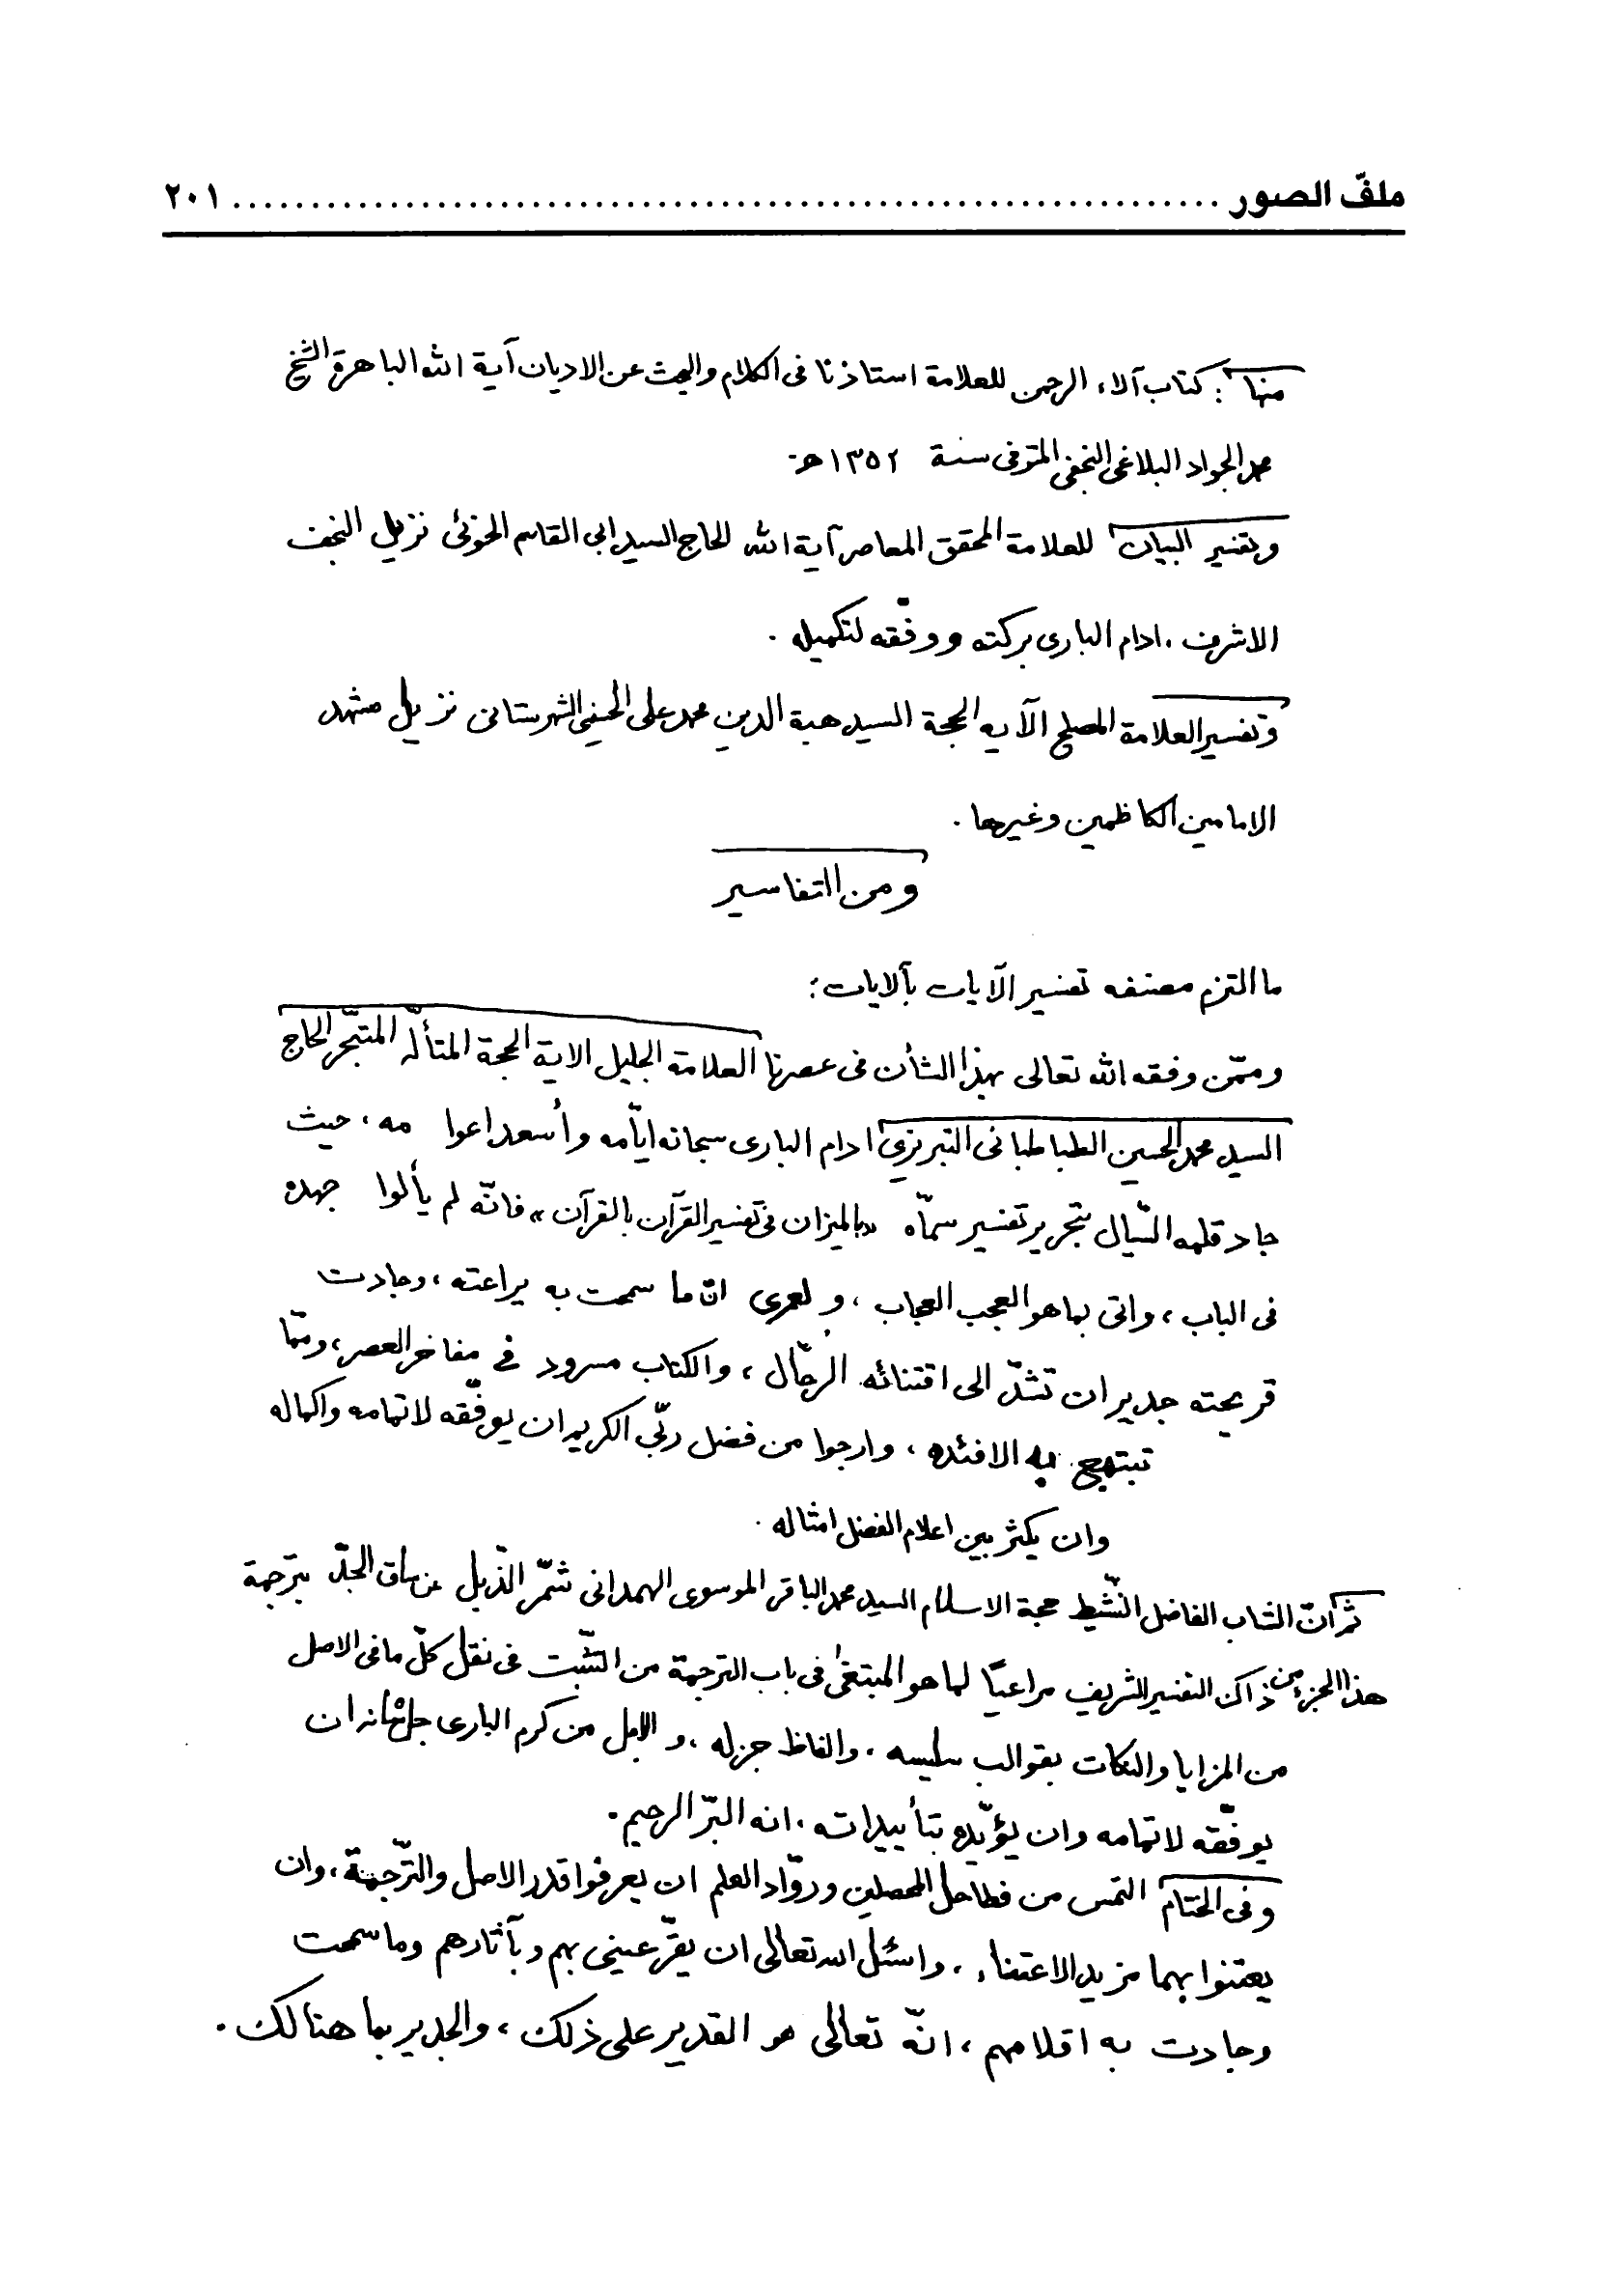 ملفّ الصور ............................................................ ٢٠١
منها : كتاب آلاء الرحمن للعلامة استاذنا فى الكلام والبحث عن الاديان آية الله الباهرة الشيخ
محمد الجواد البلاغى النجفى المتوفى سنة ١٣٥٢ هـ
وتفسير البيان للعلامة المحقق المعاصر آية الله الحاج السيد ابى القاسم الخوئى نزيل النجف
الاشرف ، ادام البارى بركته ووفّقه لتكميله .
وتفسير العلامة المصلح الآيه الحجة السيد هبة الدين محمد على الحسينى الشهرستانى نزيل مشهد
الامامين الكاظمين وغيرها .
ومن التفاسير
ما التزم مصنفه تفسير الآيات بآلايات :
وممّن وفقه الله تعالى بهذا الشأن فى عصرنا العلامة الجليل الاية الحجة المتألّه المتبحّر الحاج
السيد محمد الحسين الطباطبائى التبريزي ادام البارى سبحانه ايّامه وأسعد اعوامه ، حيث
جاد قلمه السّيال بتحرير تفسير سمّاه «بالميزان فى تفسير القرآن بالقرآن» فانّه لم يألوا جهده
فى الباب ، واتى بما هو العجب العجاب ، و لعمرى انّ ما سمحت به يراعته ، وجادت
قريحته جدير ان تشدّ الى اقتنائه الرّحّال ، والكتاب مسرود في مفاخر العصر ، وممّا
تبتهج به الافئده ، وارجوا من فضل ربّي الكريم ان يوفّقه لاتمامه واكماله
وان يكثر بين اعلام الفضل امثاله .
ثمّ انّ الشاب الفاضل النّشيط حجة الاسلام السيد محمد الباقر الموسوى الهمدانى شمّر الذّيل عن ساق الجدّ بترجمة
هذا الجزء من ذاك التفسير الشريف مراعيًا لما هو المبتغى فى باب الترجمة من التّثبت فى نقل كلّ ما فى الاصل
من المزايا والنكات بقوالب سليسه ، والفاظ جزله ، و الامل من كرم البارى جلّ شانه ان
يوفّقه لاتمامه وان يؤيّده بتأييداته ، انه البرّ الرحيم .
وفى الختام التمس من فطاحل المحصلين وروّاد العلم ان يعرفوا قدر الاصل والتّرجمة ، وان
يعتنوا بهما مزيد الاعتناء ، واسئل الله تعالى ان يقرّ عينى بهم وبآثارهم وما سمحت
وجادت به اقلامهم ، انّه تعالى هو القدير على ذلك ، والجدير بما هنالك .